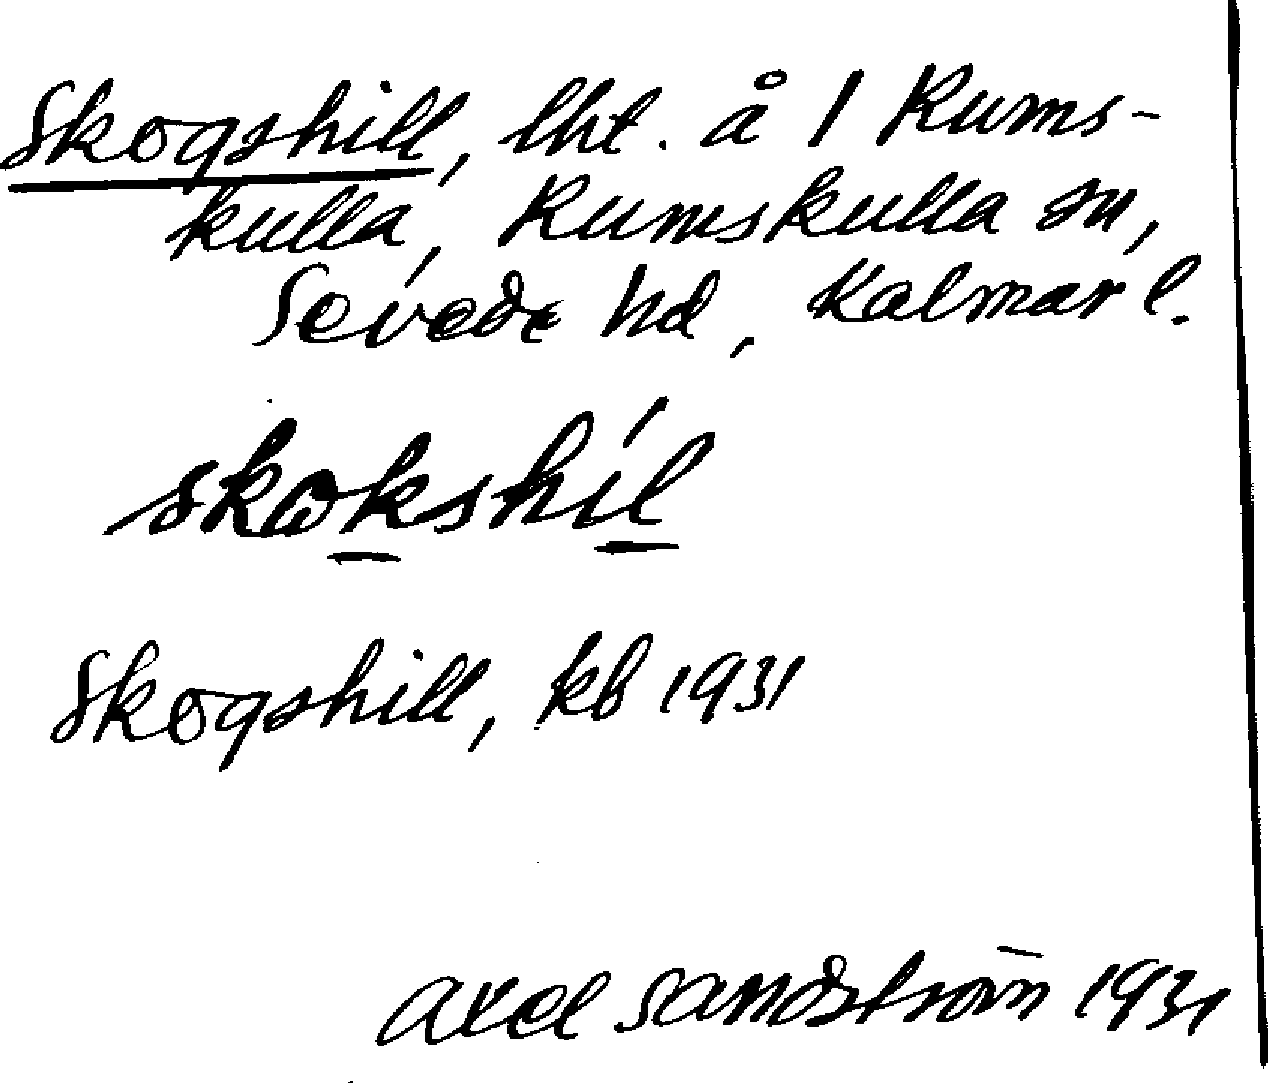 Skogshill, lht. å 1 Rums-
kulla, Rumskulla sn,
Sevede hd, Kalmar l.
skωkshíl
Skogshill, kb 1931
Axel Sandström 1931